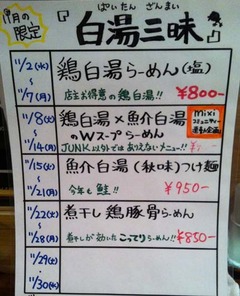 11月の限定
ぱいたん ざんまい
『白湯三昧』
11/2(水)
～
11/7(月)
鶏白湯らーめん(塩)
店主お得意の鶏白湯!! ¥800-
11/8(火)
～
11/14(月)
鶏白湯×魚介白湯
のWスープらーめん
mixi
コミュニティー
JUNK以外ではありえないメニュー!!
11/15(火)
～
11/21(月)
魚介白湯(秋味)つけ麺
今年も鮭!! ¥950-
11/22(火)
～
11/28(月)
煮干し鶏豚骨らーめん
煮干しが効いたこってりらーめん!! ¥850-
11/29(火)
～
11/30(水)